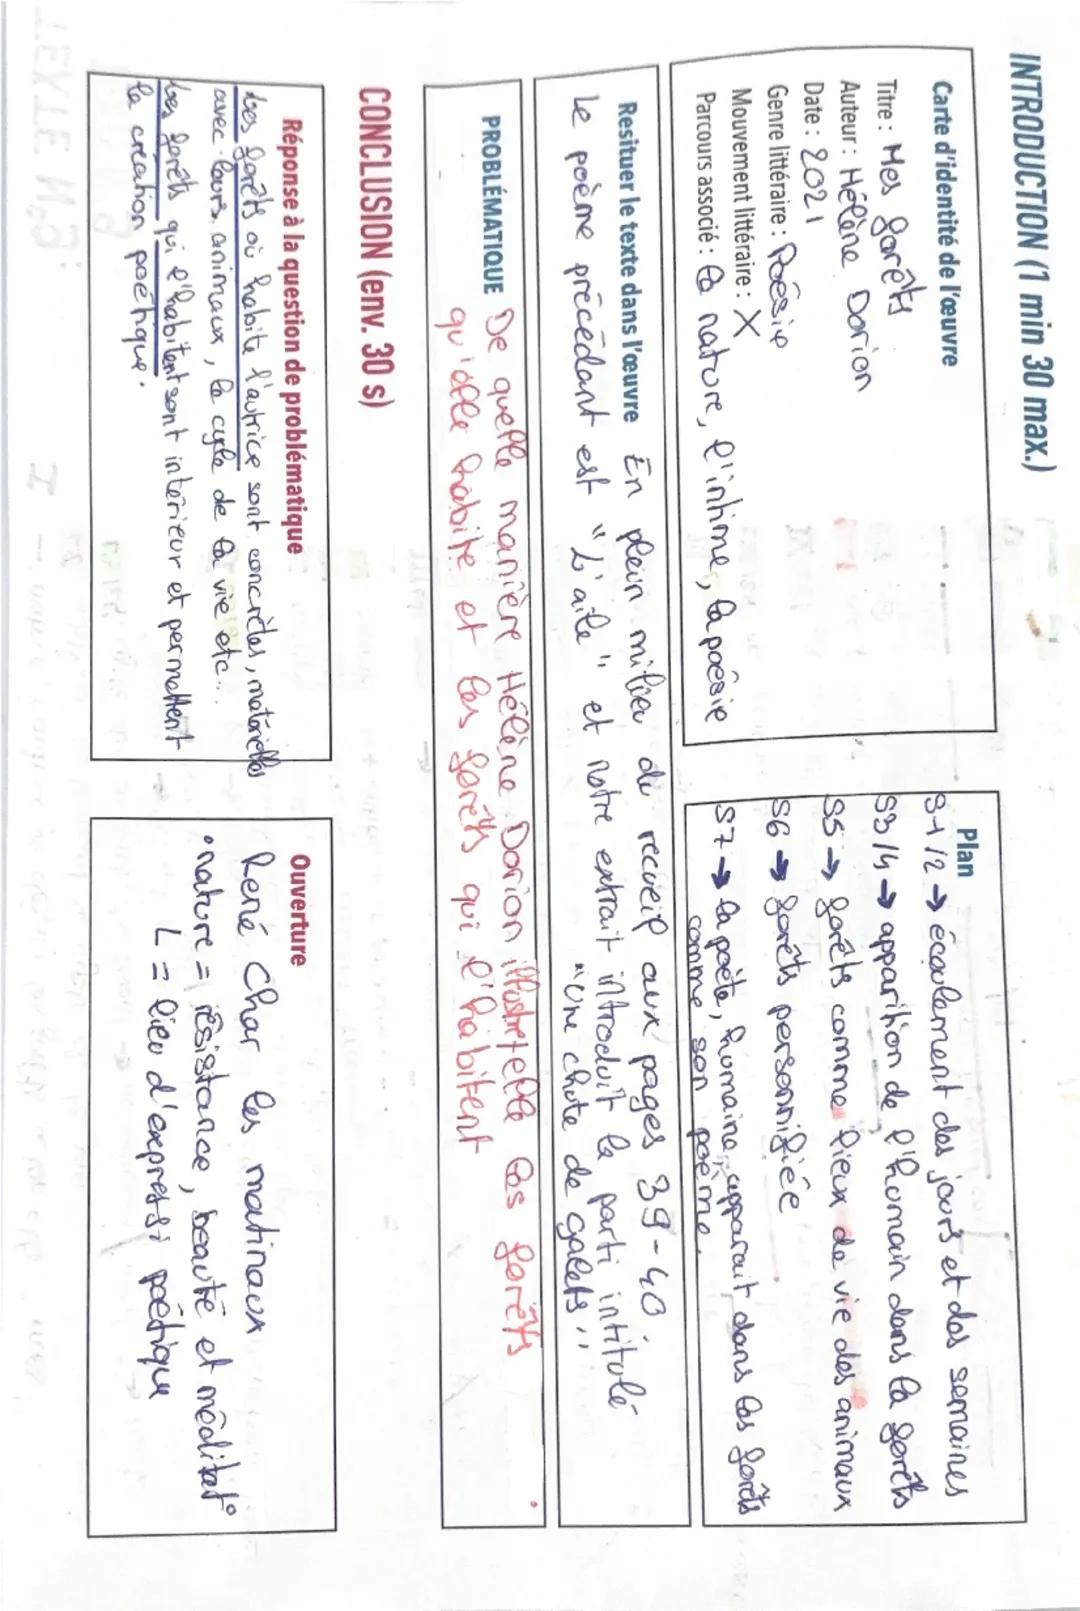 INTRODUCTION (1 min 30 max.)
Carte d'identité de l'œuvre
Titre : Mes forêts
Auteur : Hélène Dorion
Date : 2021
Genre littéraire : Poésie
Mouvement littéraire : X
Parcours associé : la nature, l'intime, la poésie
Plan
S1/2 → écoulement des jours et des semaines
S3/4 → apparition de l'humain dans la forêts
S5 → forêts comme lieux de vie des animaux
S6 → forêts personnifiée
S7 → la poète, humaine, apparait dans les forêts
comme son poème.
Resituer le texte dans l'œuvre En plein milieu du recueil aux pages 39-40.
Le poème précédant est "L'aile" et notre extrait introduit la parti intitulé
"une chute de galets"
PROBLÉMATIQUE De quelle manière Hélène Dorion illustre telle les forêts
qu'elle habite et les forêts qui l'habitent
CONCLUSION (env. 30 s)
Réponse à la question de problématique
Les forêts où habite l'autrice sont concrètes, matérielles
avec leurs animaux, le cycle de la vie etc..
Les forêts qui l'habitent sont intérieur et permettent
la création poétique.
Ouverture
René Char les matinaux
• nature = résistance, beauté et méditat°
L = lieu d'expressi poétique
TEXTE N°2 :